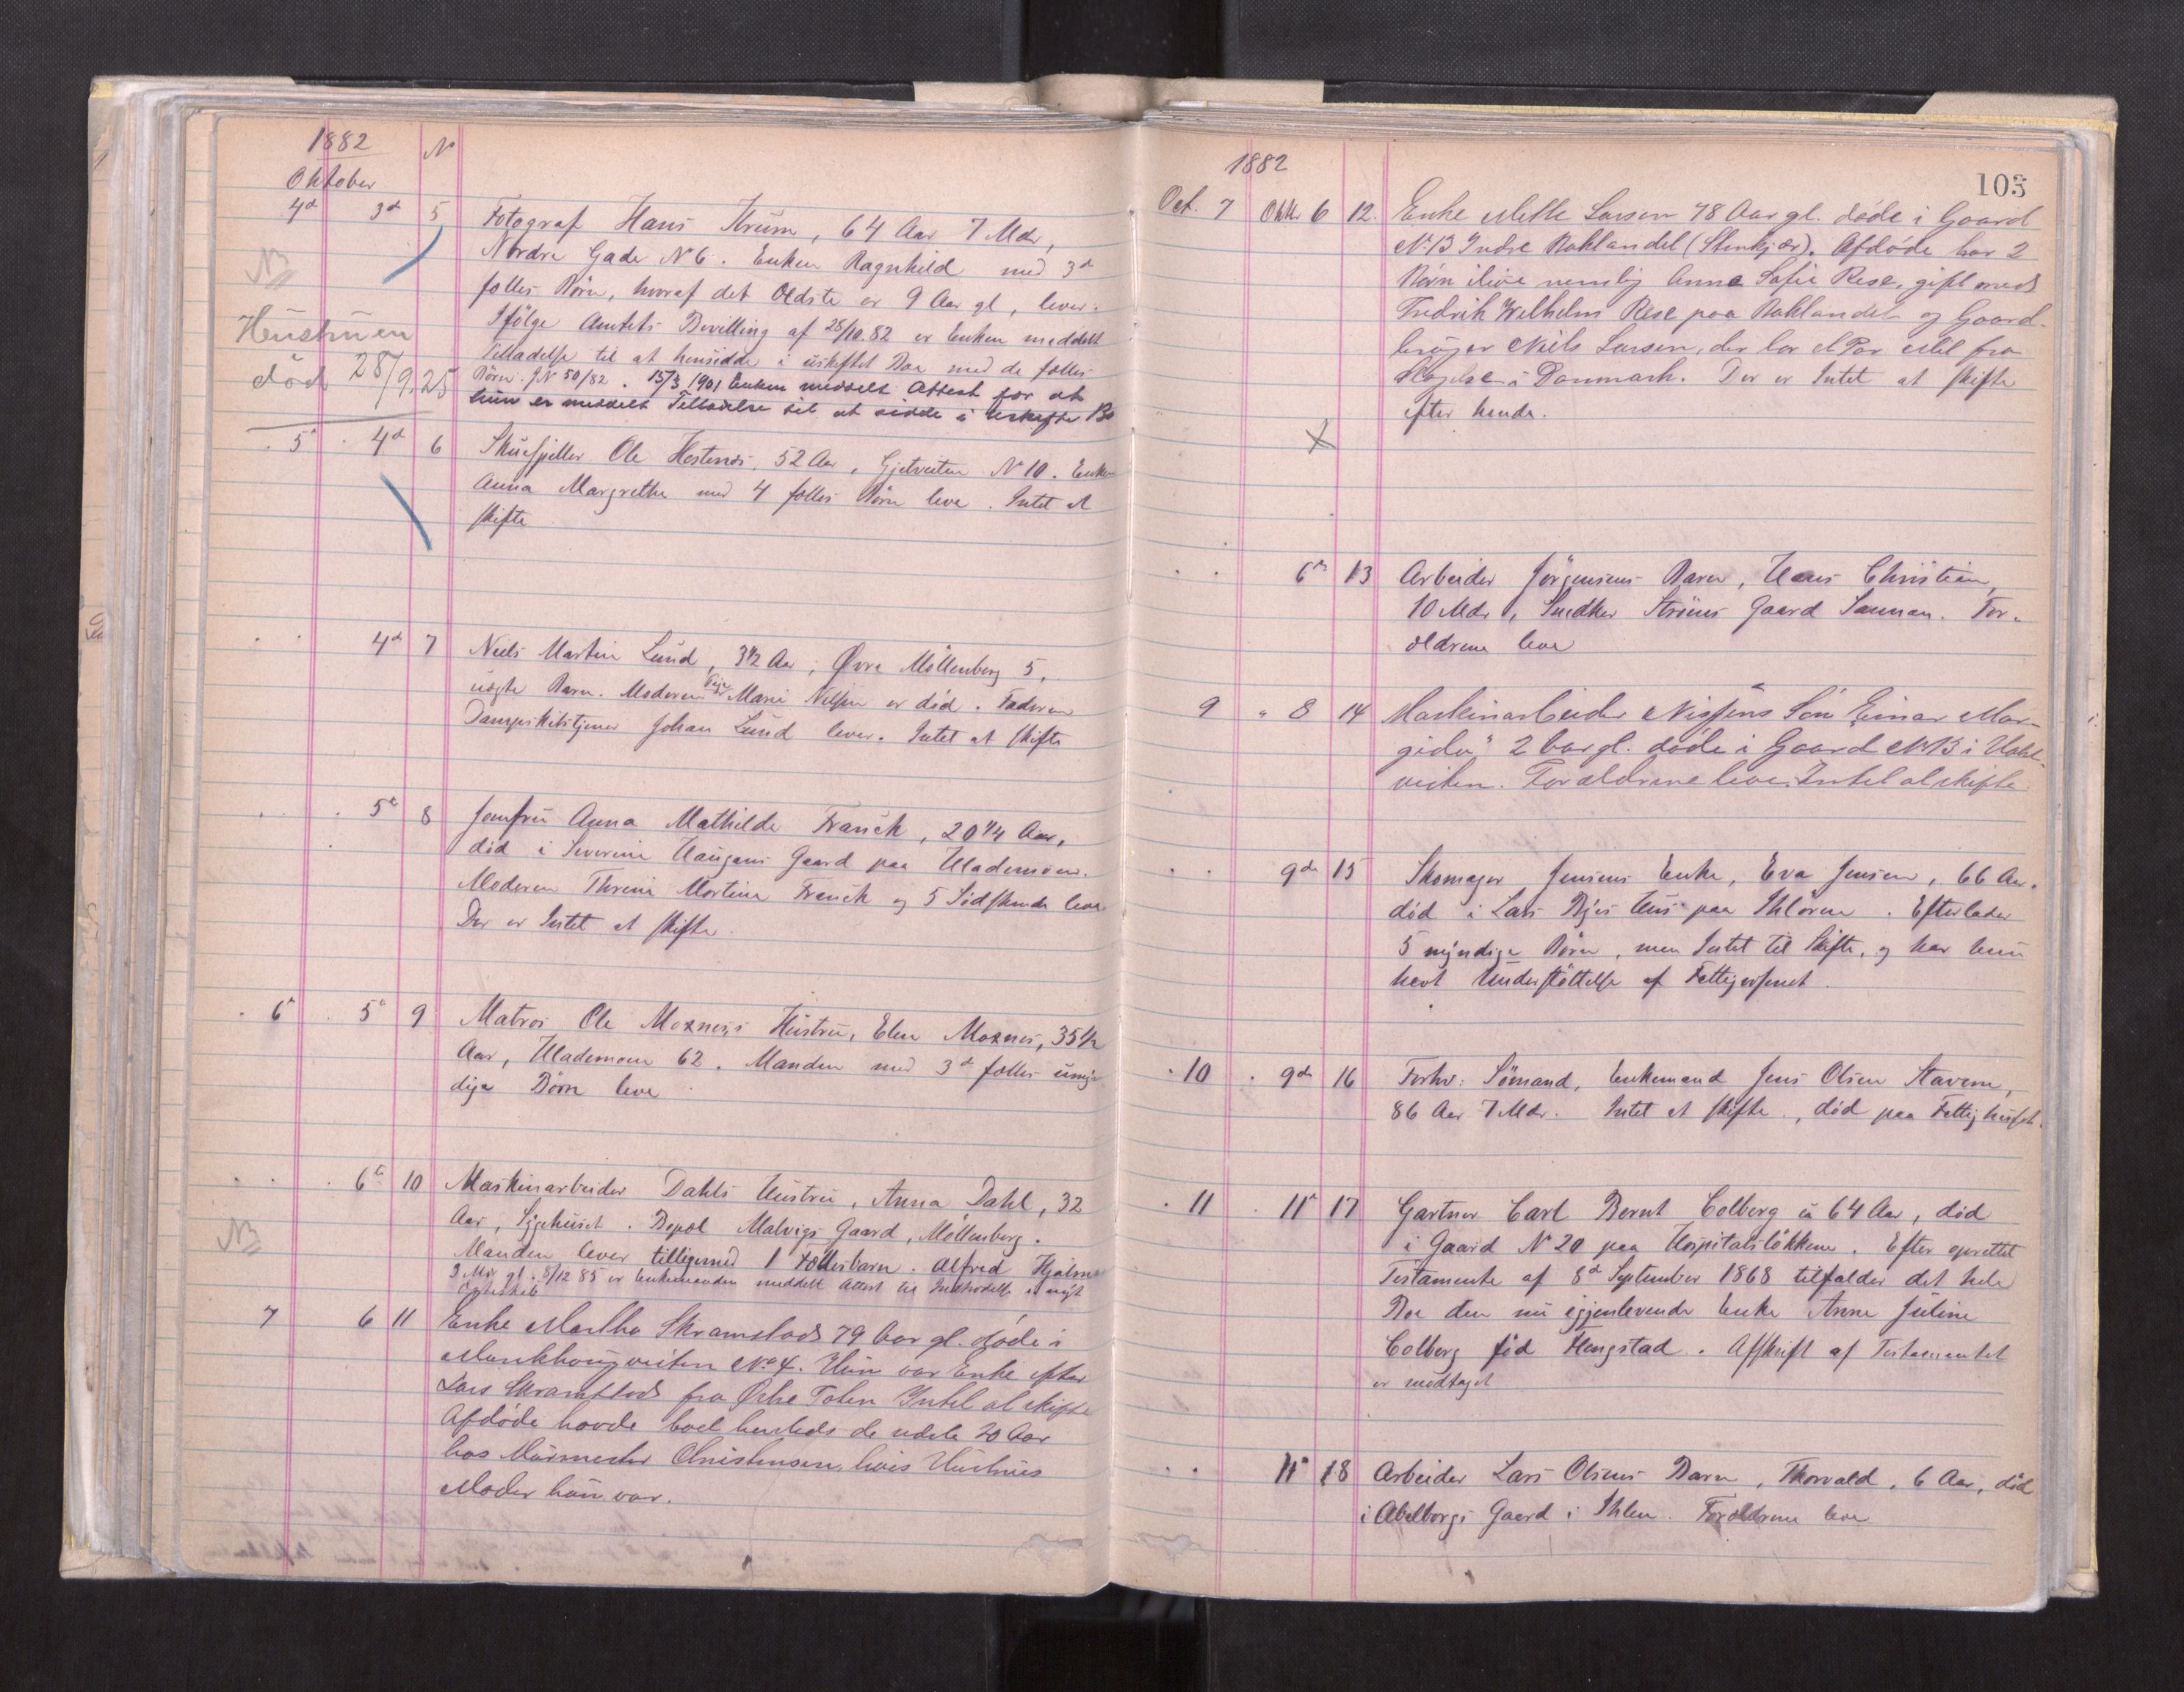 1882
No
Oktober
4de 3de 5 Fotograf Hans Krüm, 64 Aar 7 Mdr,
Nordre Gade No 6. Enken Ragnhild med 3de
NB
fælles Børn, hvoraf det Ældste er 9 Aar gl, lever.
Ifølge Amtets Bevilling af 28/10.82 er Enken meddelt
Hustruen
Tilladelse til at hensidde i uskiftet Boe med de fælles
død 28/9.25
Børn. J.N 50/82. 15/3 1901 Enken meddelt Attest for at
hun er meddelt Tilladelse til at sidde i Uskiftet Bo
5te 4de 6 Skuespiller Ole Hestenæs, 52 Aar, Gjetveiten No 10. Enken
Anna Margrethe med 4 fælles Børn leve. Intet at
skifte
4de 7 Niels Martin Lund, 3 1/2 Aar, Øvre Møllenberg 5,
uægte Barn. Moderen Pige Marie Nilsen er død. Faderen
Dampskibstjener Johan Lund lever. Intet at skifte
5te 8 Jomfru Anna Mathilde Franck, 20 1/4 Aar,
død i Severine Haugens Gaard paa Ilademoen.
Moderen Martine Franck og 5 Sødskende leve
Der er Intet at skifte.
6te 5te 9 Matros Ole Moxness Hustru, Elen Moxnes, 35 1/2
Aar, Ilademoen 62. Manden med 3de fælles umyn
dige Børn leve
6te 10 Maskinarbeider Dahls Hustru, Anna Dahl, 32
Aar, Sygehuset. Bopæl Malvigs Gaard, Møllenberg.
NB
Manden lever tilligemed 1 Fællesbarn. Alfred Hjalmar
9 Mdr gl. 5/12 85 er Enkemanden meddelt Attest til Indtrædelse i nyt
Ægteskab
7 6 11 Enke Martha Skramstad 79 Aar gl. døde i
Munkhaugveiten No 4. Hun var Enke efter
Lars Skramstad fra Østre Toten Intet at skifte
Afdøde havde boet hersteds de sidste 20 Aar
hos Murmester Christensen, hvis Hustrues
Moder hun var.
1882
105
Oct. 7 Oktbr 6 12. Enke Mette Larsen 78 Aar gl. døde i Gaard
No 13 Indre Baklandet (Stenkjær). Afdøde har 2
Børn ilive nemlig Anna Sofie Rese, gift med
Fredrik Wilhelm Rese paa Baklandet og Gaard-
bruger Niels Larsen, der bor et Par Mil fra
Slagelse i Danmark. Der er Intet at skifte
efter hende.
6te 13 Arbeider Jørgensens Barn, Hans Christian,
10 Mdr, Snedker Strøms Gaard Sannan. For-
ældrene leve
9 " 8 14 Maskinarbeider Nissens Søn Einar Mar-
2 Aar gl. døde i Gaard No 13 i
veiten. Forældrene leve. Intet at skifte
9de 15 Skomager Jensens Enke, Eva Jensen, 66 Aar.
død i Lars Byes Hus paa Ihløren. Efterlader
5 myndige Børn, men Intet til Skifte, og har hun
havt Understøttelse af Fattigvæsenet
10 9de 16 Forhv: Sømand, Enkemand Jens Olsen Stavem,
86 Aar 7 Mdr. Intet at skifte., død paa Fattighuset.
11 11te 17 Gartner Carl Bernt Colberg 64 Aar, død
i Gaard No 20 paa Hospitalsløkken. Efter oprettet
Testamente af 8de September 1868 tilfalder det hele
Boe den nu igjenlevende Enke Anne Juline
Colberg fød Hengstad. Afskrift af Testamentet
er modtaget
11te 18 Arbeider Lars Olsens Barn, Thorvald, 6 Aar, død
i Abelborgs Gaard i Ihlen. Forældrene leve